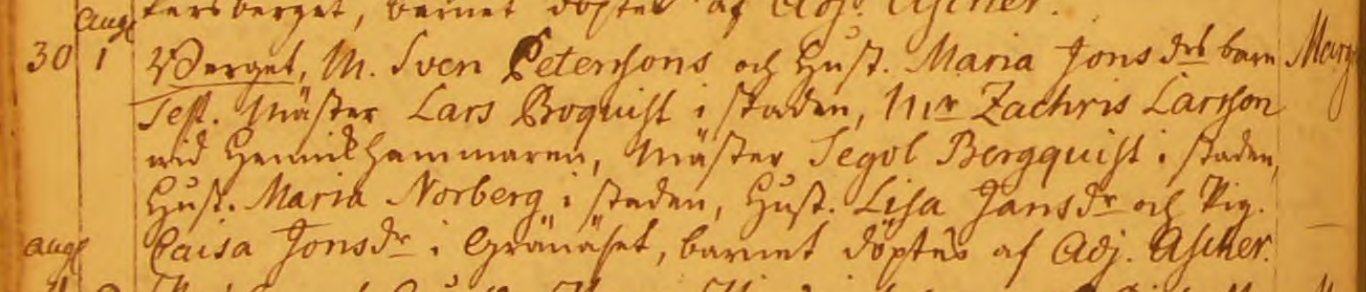 kersberget, barnet döptes af Adj. Ascher.
Aug
30 1 Berget, M. Sven Petersons och Hust. Maria Jons drs barn Marg
Test. Mäster Lars Boquist i staden, Mr Zachris Larsson
wid Hennikhammaren, Mäster Segol Bergquist i staden,
Hust. Maria Norberg i staden, Hust. Lisa Jansdr och Pig.
Aug Caisa Jonsdr i Gränäset, barnet döptes af Adj. Ascher.